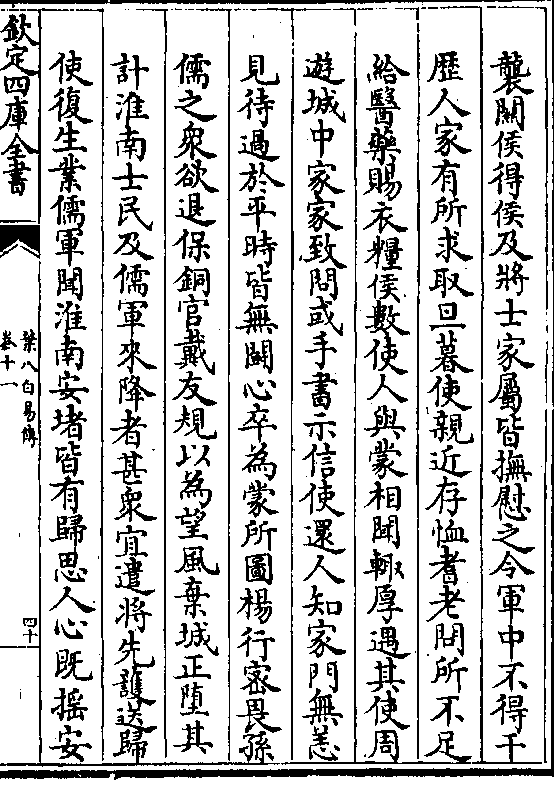 襲關侯得侯及將士家屬皆撫慰之令軍中不得干
歴人家有所求取旦暮使親近存恤耆老問所不足
給醫藥賜衣糧侯數使人與蒙相聞輙厚遇其使周
遊城中家家致問或手書示信使還人知家門無恙
見待過於平時皆無鬭心卒為蒙所圖楊行宻畏孫
儒之衆欲退保銅官戴友規以為望風棄城正堕其
計淮南士民及儒軍來降者甚衆宜遣將先護送歸
使復生業儒軍聞淮南安堵皆有歸思人心既揺安
欽定四庫全書
葉八白易傳
卷十一
四十